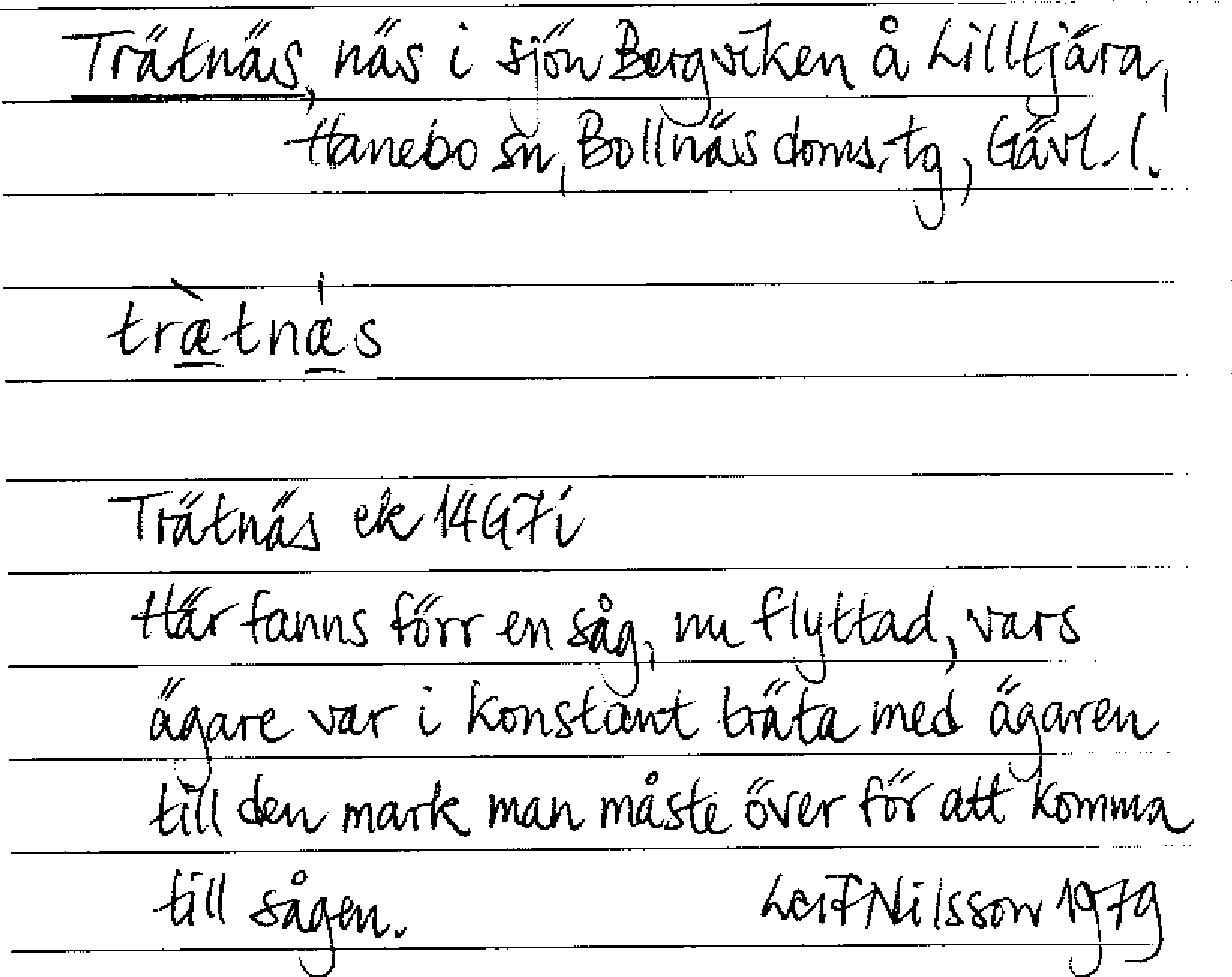 Trätnäs, näs i sjön Bergviken å Lilltjära,
Hanebo sn, Bollnäs doms.-tg, Gävl. l.
træ̀tnæ̍s
Trätnäs ek 14G7i
Här fanns förr en såg, nu flyttad, vars
ägare var i konstant träta med ägaren
till den mark man måste över för att komma
till sågen. Leif Nilsson 1979